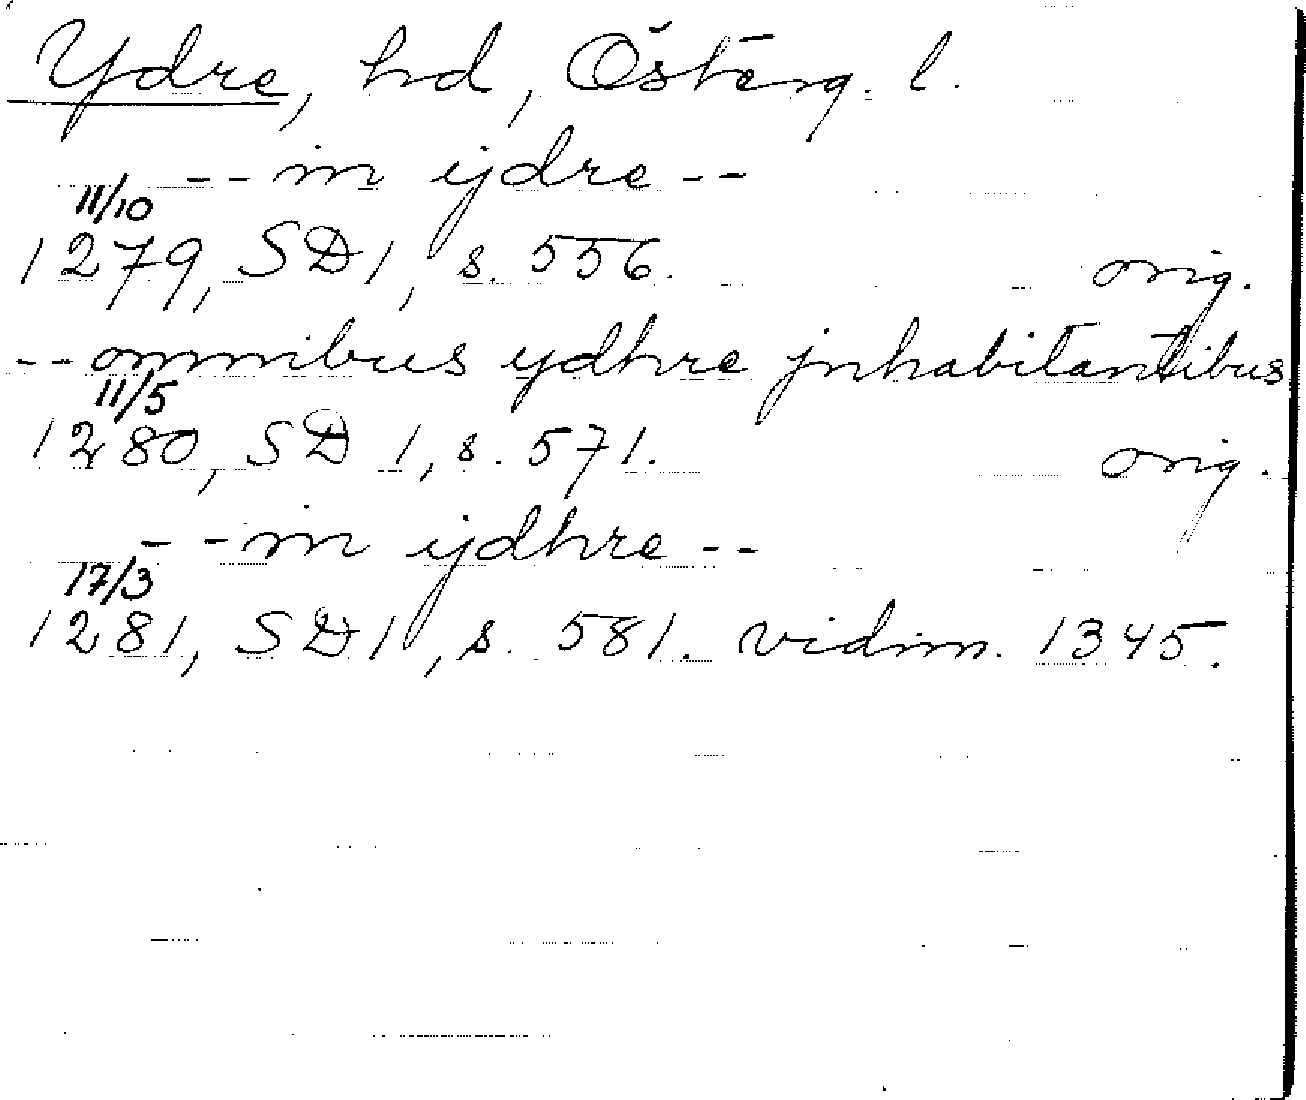 Ydre, hd, Österg. l.
-- in ydre --
11/10
1279, SD 1, s. 556. orig.
-- omnibus ydhre jnhabitantibus
11/5
1280, SD 1, s. 571. orig.
-- in ydhre --
17/3
1281, SD 1, s. 581. vidim. 1345.